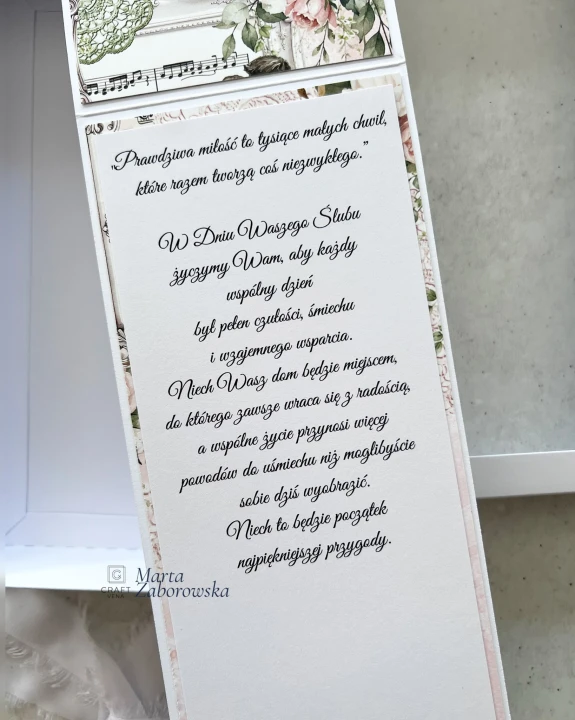 „Prawdziwa miłość to tysiące małych chwil,
które razem tworzą coś niezwykłego.”
W Dniu Waszego Ślubu
życzymy Wam, aby każdy
wspólny dzień
był pełen czułości, śmiechu
i wzajemnego wsparcia.
Niech Wasz dom będzie miejscem,
do którego zawsze wraca się z radością,
a wspólne życie przynosi więcej
powodów do uśmiechu niż moglibyście
sobie dziś wyobrazić.
Niech to będzie początek
najpiękniejszej przygody.
CRAFT
Marta
Zaborowska